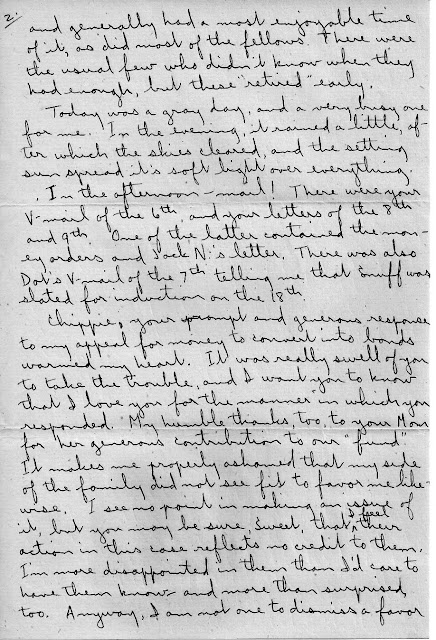 2.
and generally had a most enjoyable time
of it, as did most of the fellows. There were
the usual few who didn't know when they
had enough, but these "retired" early.
Today was a gray day, and a very busy one
for me. In the evening, it rained a little, af-
ter which the skies cleared, and the setting
sun spread it's soft light over everything.
In the afternoon - mail! There were your
V-mail of the 6th, and your letters of the 8th
and 9th. One of the latter contained the mon-
ey orders and Jack N.'s letter. There was also
Dot's V-mail of the 7th telling me that Snuff was
slated for induction on the 18th.
Chippie, your prompt and generous response
to my appeal for money to convert into bonds
warmed my heart. It was really swell of you
to take the trouble, and I want you to know
that I love you for the manner in which you
responded. My humble thanks, too, to your Mom
for her generous contribution to our "fund".
It makes me properly ashamed that my side
of the family did not see fit to favor me like-
wise. I see no point in making an issue of
it, but you may be sure, Sweet, that I feel their
action in this case reflects no credit to them.
I'm more disappointed in them than I'd care to
have them know and more than surprised,
too. Anyway, I am not one to dismiss a favor